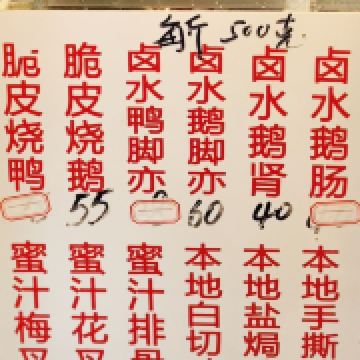 每斤500克
卤水鹅肠
卤水鹅肾
40
卤水鹅脚亦
60
卤水鸭脚亦
脆皮烧鹅
55
脆皮烧鸭
本地手撕
本地盐焗
本地白切
蜜汁排骨
蜜汁花叉
蜜汁梅叉